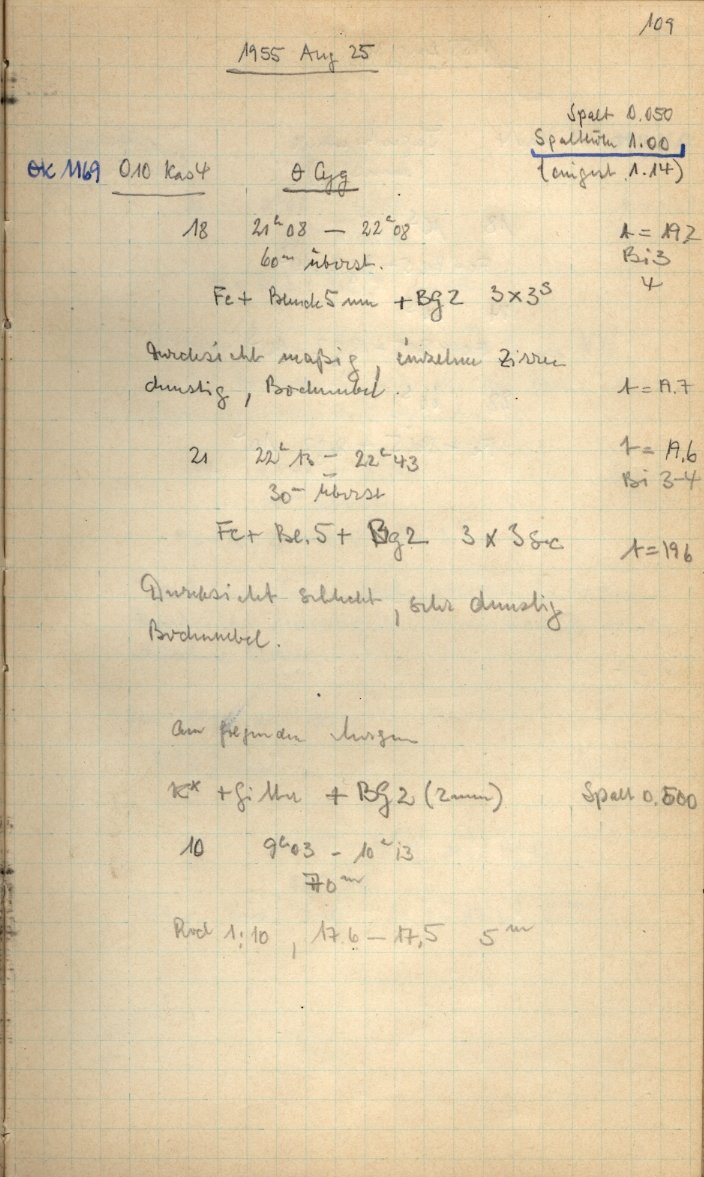 109
1955 Aug 25
Spalt 0.050
Spalthöhe 1.00
(eingest. 1.14)
GK 1169 010 Kas 4 θ Cyg
18 21h 08 — 22h 08 t = 19.2
60m überst. Bi 3
4
Fe + Blende 5 mm + BG 2 3 x 3s
Durchsicht mäßig, einzelne Zirren
dunstig, Bodennebel. t = 19.7
21 22h 13 — 22h 43 t = 19.6
30m überst Bi 3-4
Fe + Bl. 5 + Bg 2 3 x 3 sec t = 19.6
Durchsicht schlecht, sehr dunstig
Bodennebel.
am folgenden Morgen
K* + Gitter + BG 2 (2mm) Spalt 0.500
10 9h 03 - 10h 13
70m
Rod 1:10, 17.6 — 17,5 5m